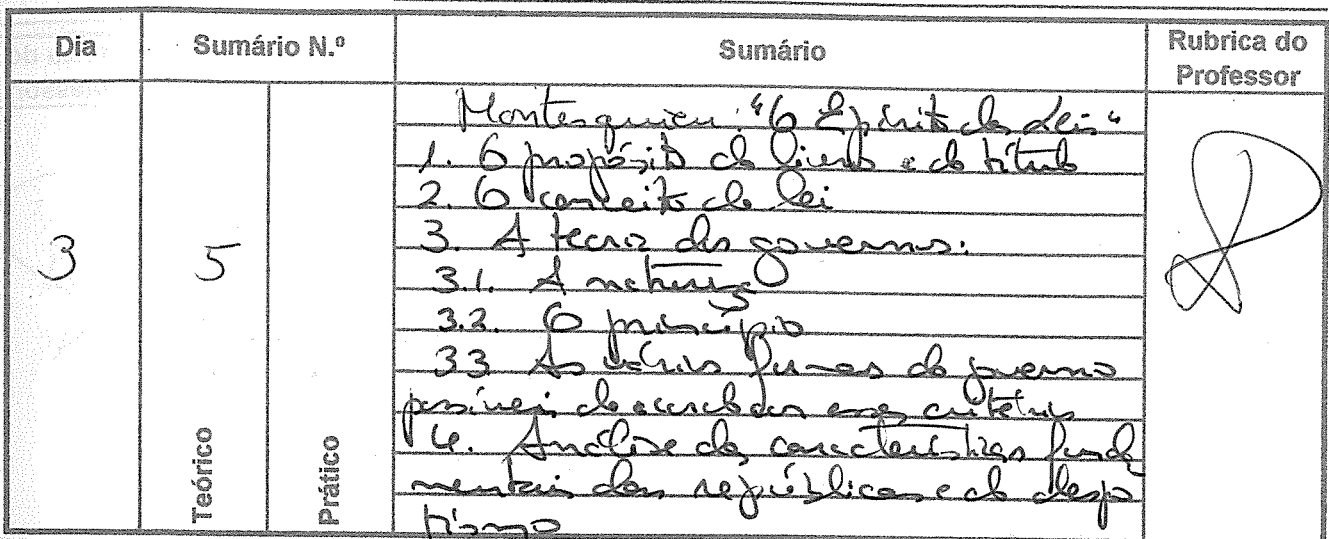 Dia
Sumário N.º
Sumário
Rubrica do
Professor
Montesquieu: "O Espírito das Leis"
1. O propósito do livro e do título
2. O conceito de lei
3. A teoria dos governos:
3.1. A natureza
3.2. O princípio
3.3 As várias formas de governo
possíveis de acordo com esses critérios
4. Análise das características funda
mentais das repúblicas e do despo
tismo
3
5
Teórico
Prático